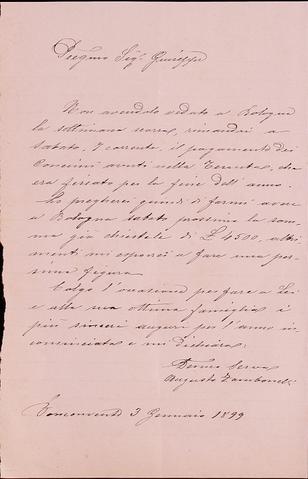 Pregmo Sigr. Giuseppe
Non avendolo veduto a Bologna
la settimana scorsa, rimandai a
sabato, 7 corrente, il pagamento dei
Concimi avuti nella Tenuta, che
era fissato per la fine dell'anno.
Lo pregherei quindi di farmi avere
a Bologna sabato prossimo la som-
ma già chiestale di £ 4500, altri-
menti mi esporrei a fare una pes-
sima figura.
Colgo l'occasione per fare a Lei
e alla sua ottima famiglia i
più sinceri auguri per l'anno in-
cominciato e mi dichiaro
Servo
Augusto
3 Gennaio 1899